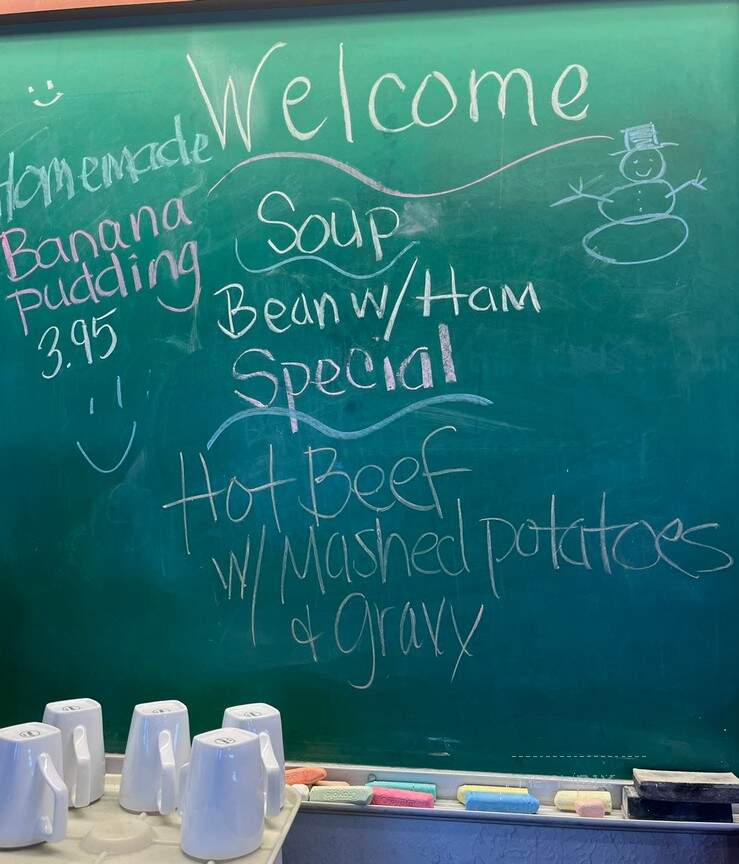 Welcome
Homemade
Banana
pudding
3.95
Soup
Bean w/ Ham
Special
Hot Beef
w/ Mashed potatoes
& gravy